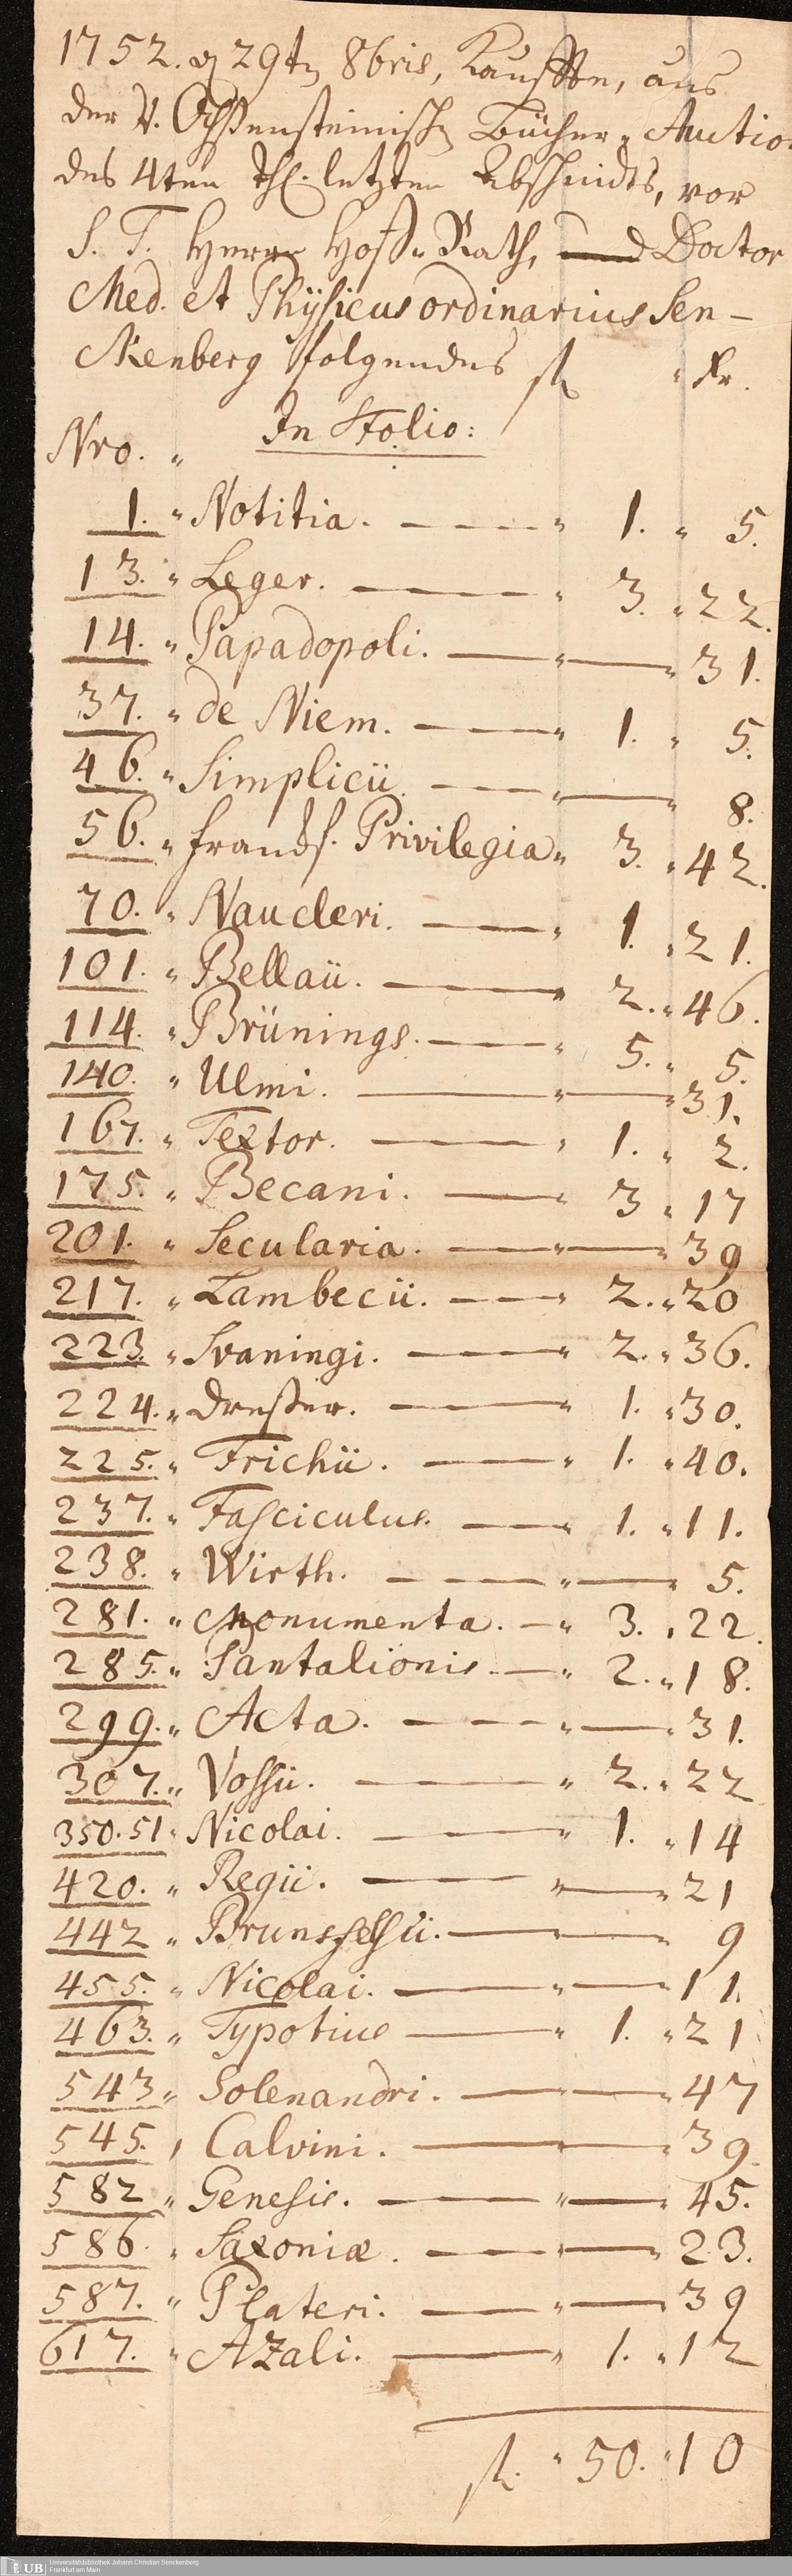 1752. d 29tn 8bris, Kauffte, aus
der V. Ochßensteinischn Bücher „ Auctio
des 4ten Thl. letzten Abschnidts, vor
S. T. Herrn Hoff „ Rath, Doctor
Med. et Phÿsicus ordinarius Sen-
ckenberg folgendes fl „ Kr.
Nro. „ In Folio:
1. „ Notitia. — „ 1. „ 5.
13. „ Leger. — „ 3. „ 22.
14. „ Papadopoli. — „ — „ 31.
37. „ de Niem. — „ 1. „ 5.
46. „ Simplicii. — „ — „ 8.
56. „ francks. Privilegia „ 3. „ 42.
70. „ Naucleri. — „ 1. „ 21.
101. „ Bellaii. — „ 2. „ 46.
114. „ Brünings. — „ 5. „ 5.
140. „ Ulmi. — „ — „ 31.
167. „ Textor. — „ 1. „ 2.
175. „ Becani. — „ 3 „ 17
201. „ Secularia. — „ — „ 39
217. „ Lambecii. — „ 2. „ 20
223 „ Svaningi. — „ 2. „ 36.
224. „ Dreßer. — „ 1. „ 30.
225. „ Frichii. — „ 1. „ 40.
237. „ Fasciculus. — „ 1. „ 11.
238. „ Wirth. — „ — „ 5.
281. „ Monumenta. — „ 3. „ 22.
285. „ Pantalionis. — „ 2. „ 18.
299. „ Acta. — „ — „ 31.
307. „ Vossii. — „ 2. „ 22
350.51 „ Nicolai. — „ 1. „ 14
420. „ Regii. — „ — „ 21
442 „ Brunsfelsii. — „ — „ 9
455. „ Nicolai. — „ — „ 11.
463. „ Typotius — „ 1. „ 21
543 „ Solenandri. — „ — „ 47
545. „ Calvini. — „ — „ 39.
582 „ Genesis. — „ — „ 45.
586. „ Saxoniæ. — „ — „ 23.
587. „ Plateri. — „ — „ 39
617. „ AZali. — „ 1. „ 12
fl. „ 50. „ 10
UB Universitätsbibliothek Johann Christian Senckenberg
Frankfurt am Main